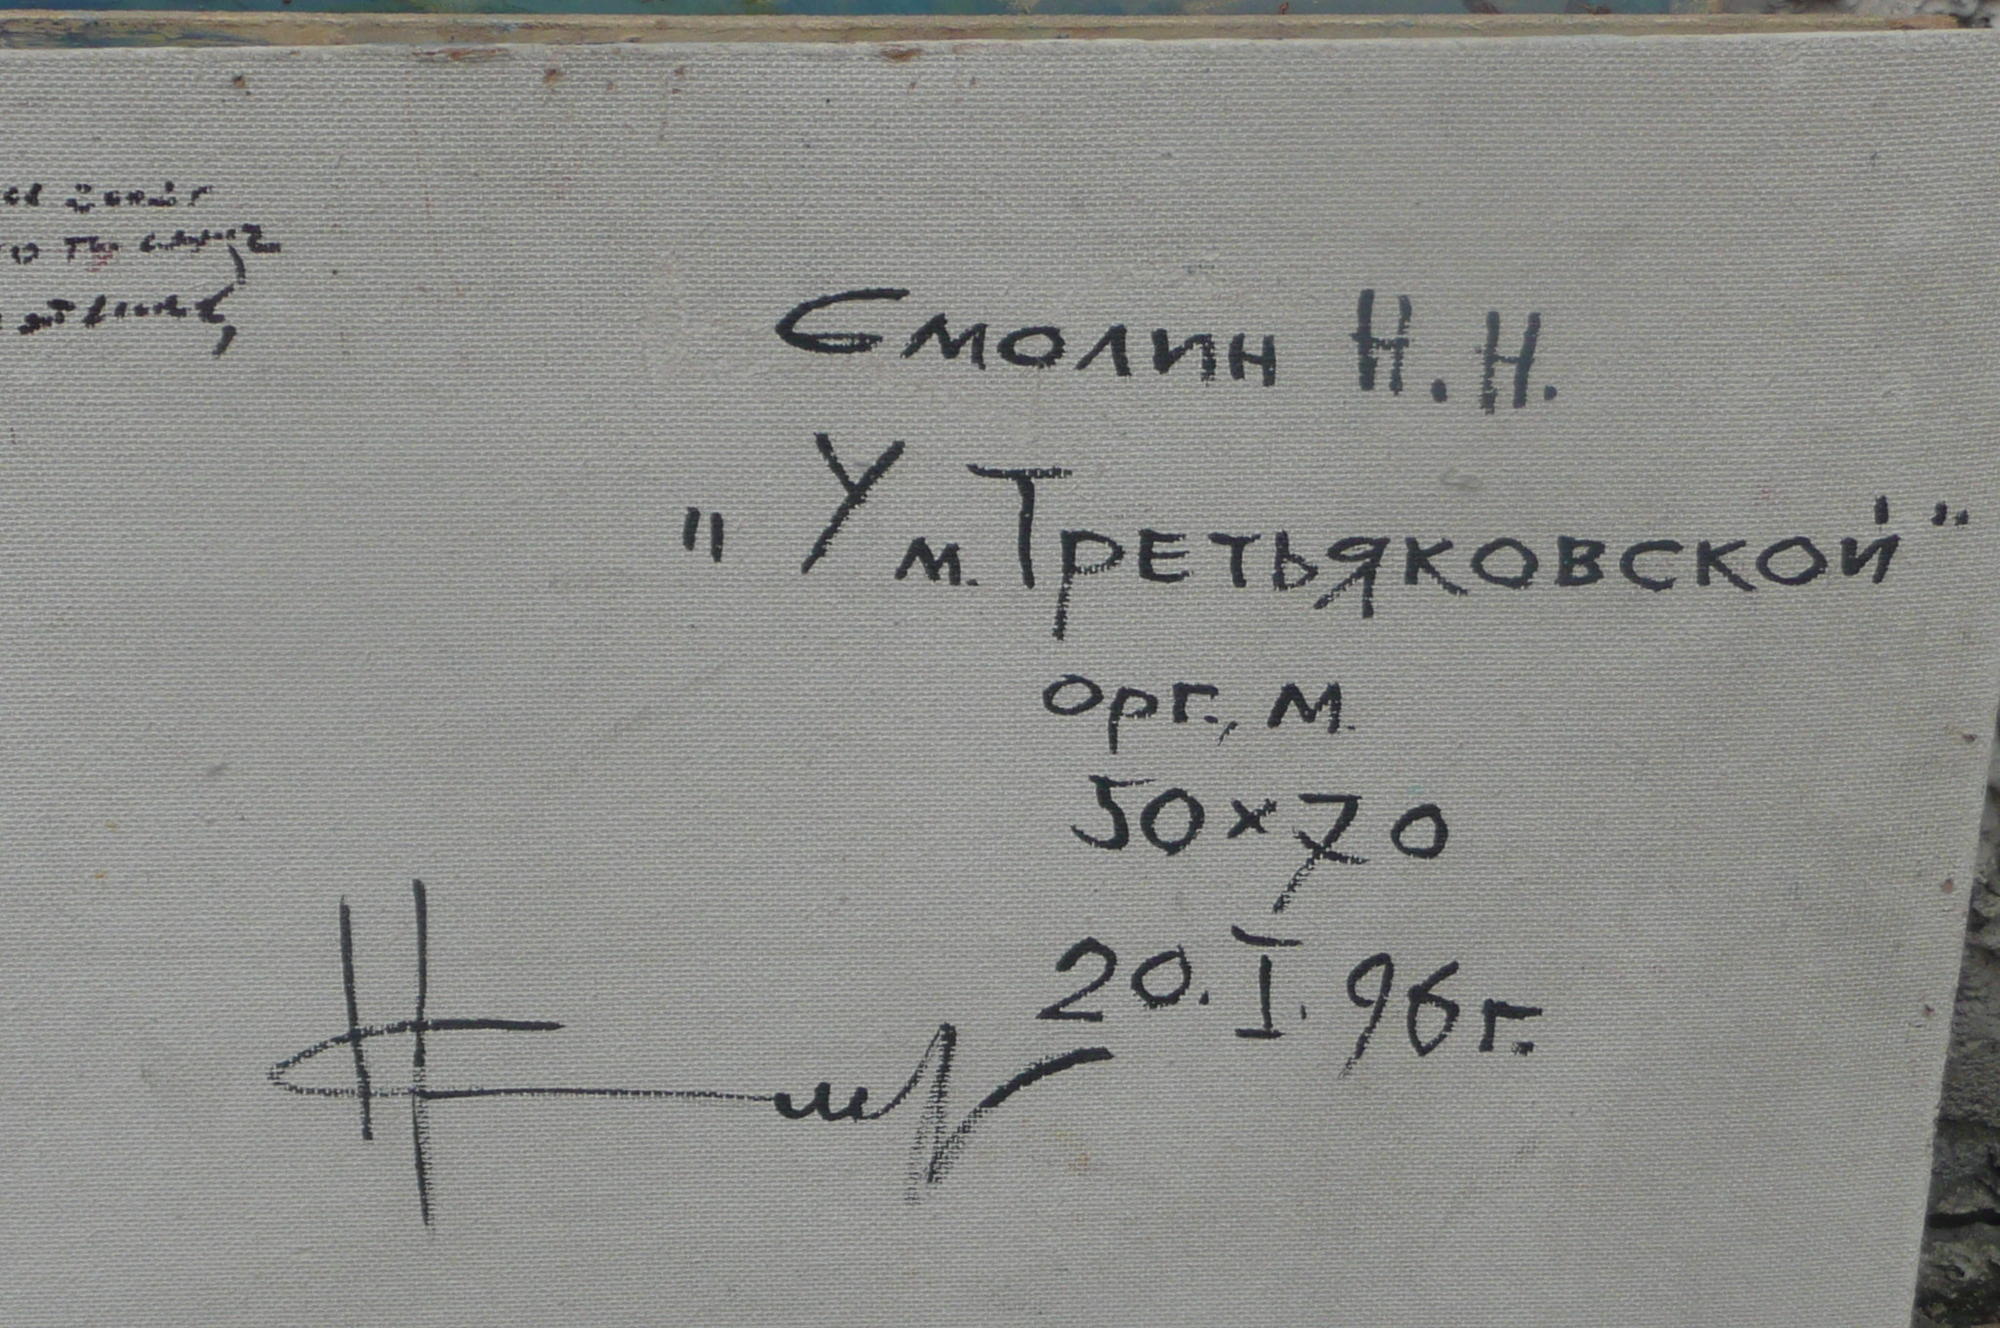 Смолин Н.Н.
"У м. Третьяковской"
орг., м.
50×70
20.I.96г.